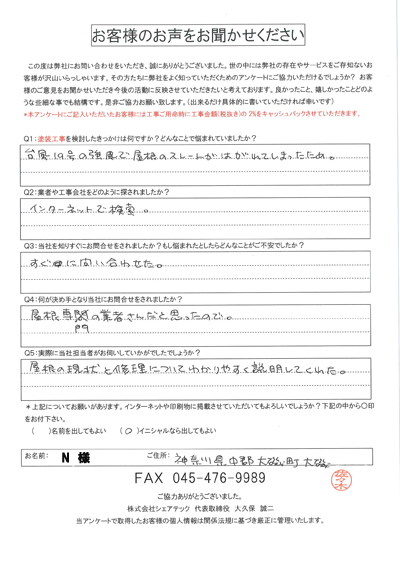 お客様のお声をお聞かせください
この度は弊社にお問い合わせをいただき、誠にありがとうございました。世の中には弊社の存在やサービスをご存知ないお
客様が沢山いらっしゃいます。その方たちに弊社をよく知っていただくためのアンケートにご協力いただけるでしょうか？ お客
様のご意見をお聞かせいただき今後の活動に反映させていただきたいと考えております。良かったこと、嬉しかったことどのよ
うな些細な事でも結構です。是非ご協力お願い致します。（出来るだけ具体的に書いていただければ幸いです）
*本アンケートにご記入いただいたお客様には工事ご用命時に工事金額(税抜き)の 2%をキャッシュバックさせていただきます。
Q1:塗装工事を検討したきっかけは何ですか？どんなことで悩まれていましたか？
台風19号の強風で屋根のスレートがはがれてしまったため。
Q2:業者や工事会社をどのように探されましたか？
インターネットで検索。
Q3:当社を知りすぐにお問合せをされましたか？もし悩まれたとしたらどんなことがご不安でしたか？
すぐに問い合わせた。
Q4:何が決め手となり当社にお問合せをされましたか？
屋根専門の業者さんだと思ったので。
Q5:実際に当社担当者がお伺いしていかがでしたでしょうか？
屋根の現状と修理についてわかりやすく説明してくれた。
＊上記についてお願いがあります。インターネットや印刷物に掲載させていただいてもよろしいでしょうか？下記の中から〇印
をお付下さい。
（ ）名前を出してもよい （○）イニシャルなら出してもよい
お名前: N 様 ご住所: 神奈川県中郡大磯町大磯
佐々木
FAX 045-476-9989
ご協力ありがとうございました。
株式会社シェアテック 代表取締役 大久保 誠二
当アンケートで取得したお客様の個人情報は関係法規に基づき厳正に管理いたします。